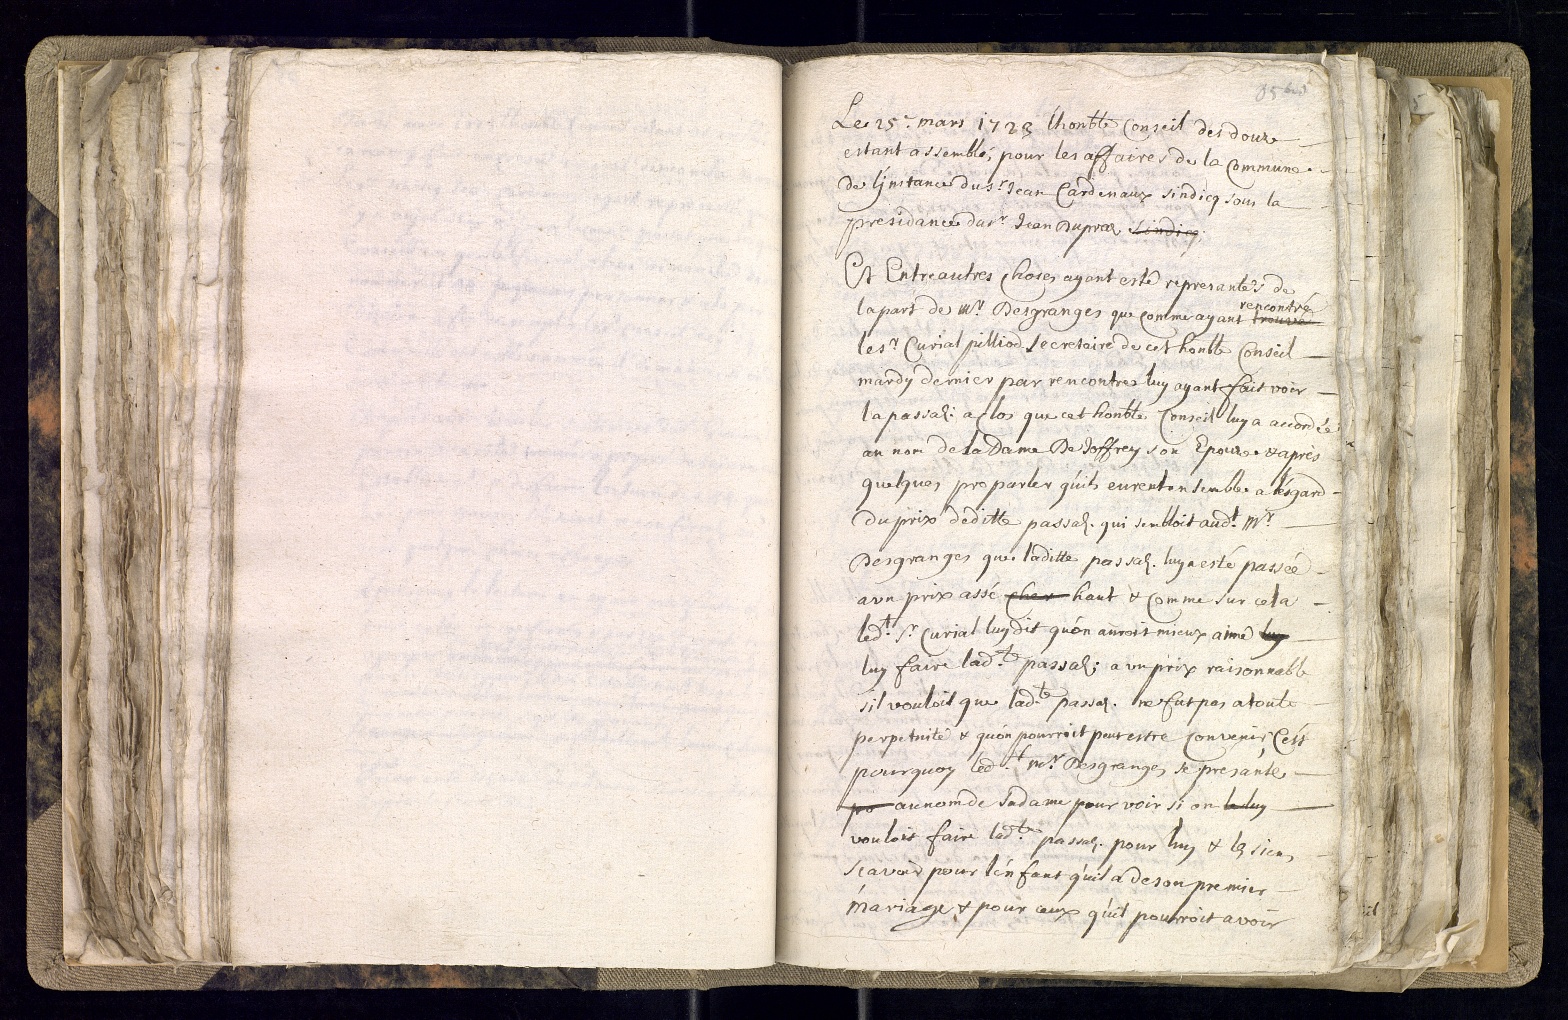 85 bis
Le 25e. mars 1728 lhonble Conseil des douze
estant assemblé, pour les affaires de la Commune
de linstance du sr Jean Cardenaux sindicq sous la
presidance du sr Jean Duprox sindicq
Et Entre autres choses ayant esté represantés de
la part de Mr. Desgranges que comme ayant trouvé rencontré
le sr Curial pilliod secretaire de cet honble Conseil
mardy dernier par rencontre luy ayant fait voir
la passa: a clos que cet honble Conseil luy a accordée
au nom de la Dame De Joffrey son Epouze & après
quelques preparler qu'ils eurent ensemble a l'ésgard
du prix déditte passa. qui sembloit audt. Mr
Desgranges que laditte passa. luy a esté passée
a vn prix assé cher haut & comme sur cela
ledt. Sr Curial luy dit qu'on auroit mieux aimé luy
luy faire ladte. passa; a vn prix raisonnable
sil vouloit que ladte passa. ne fut pas a toute
perpetuité & qu'on pourroit peut estre convenir, C'est
pourquoy ledt. Mr Desgranges se presante
po au nom de sadame pour voir si on le luy
vouloit faire ladte. passa. pour luy & les siens
scavoir pour l'énfant qu'il a de son premier
mariage & pour ceux qu'il pourroit avoir